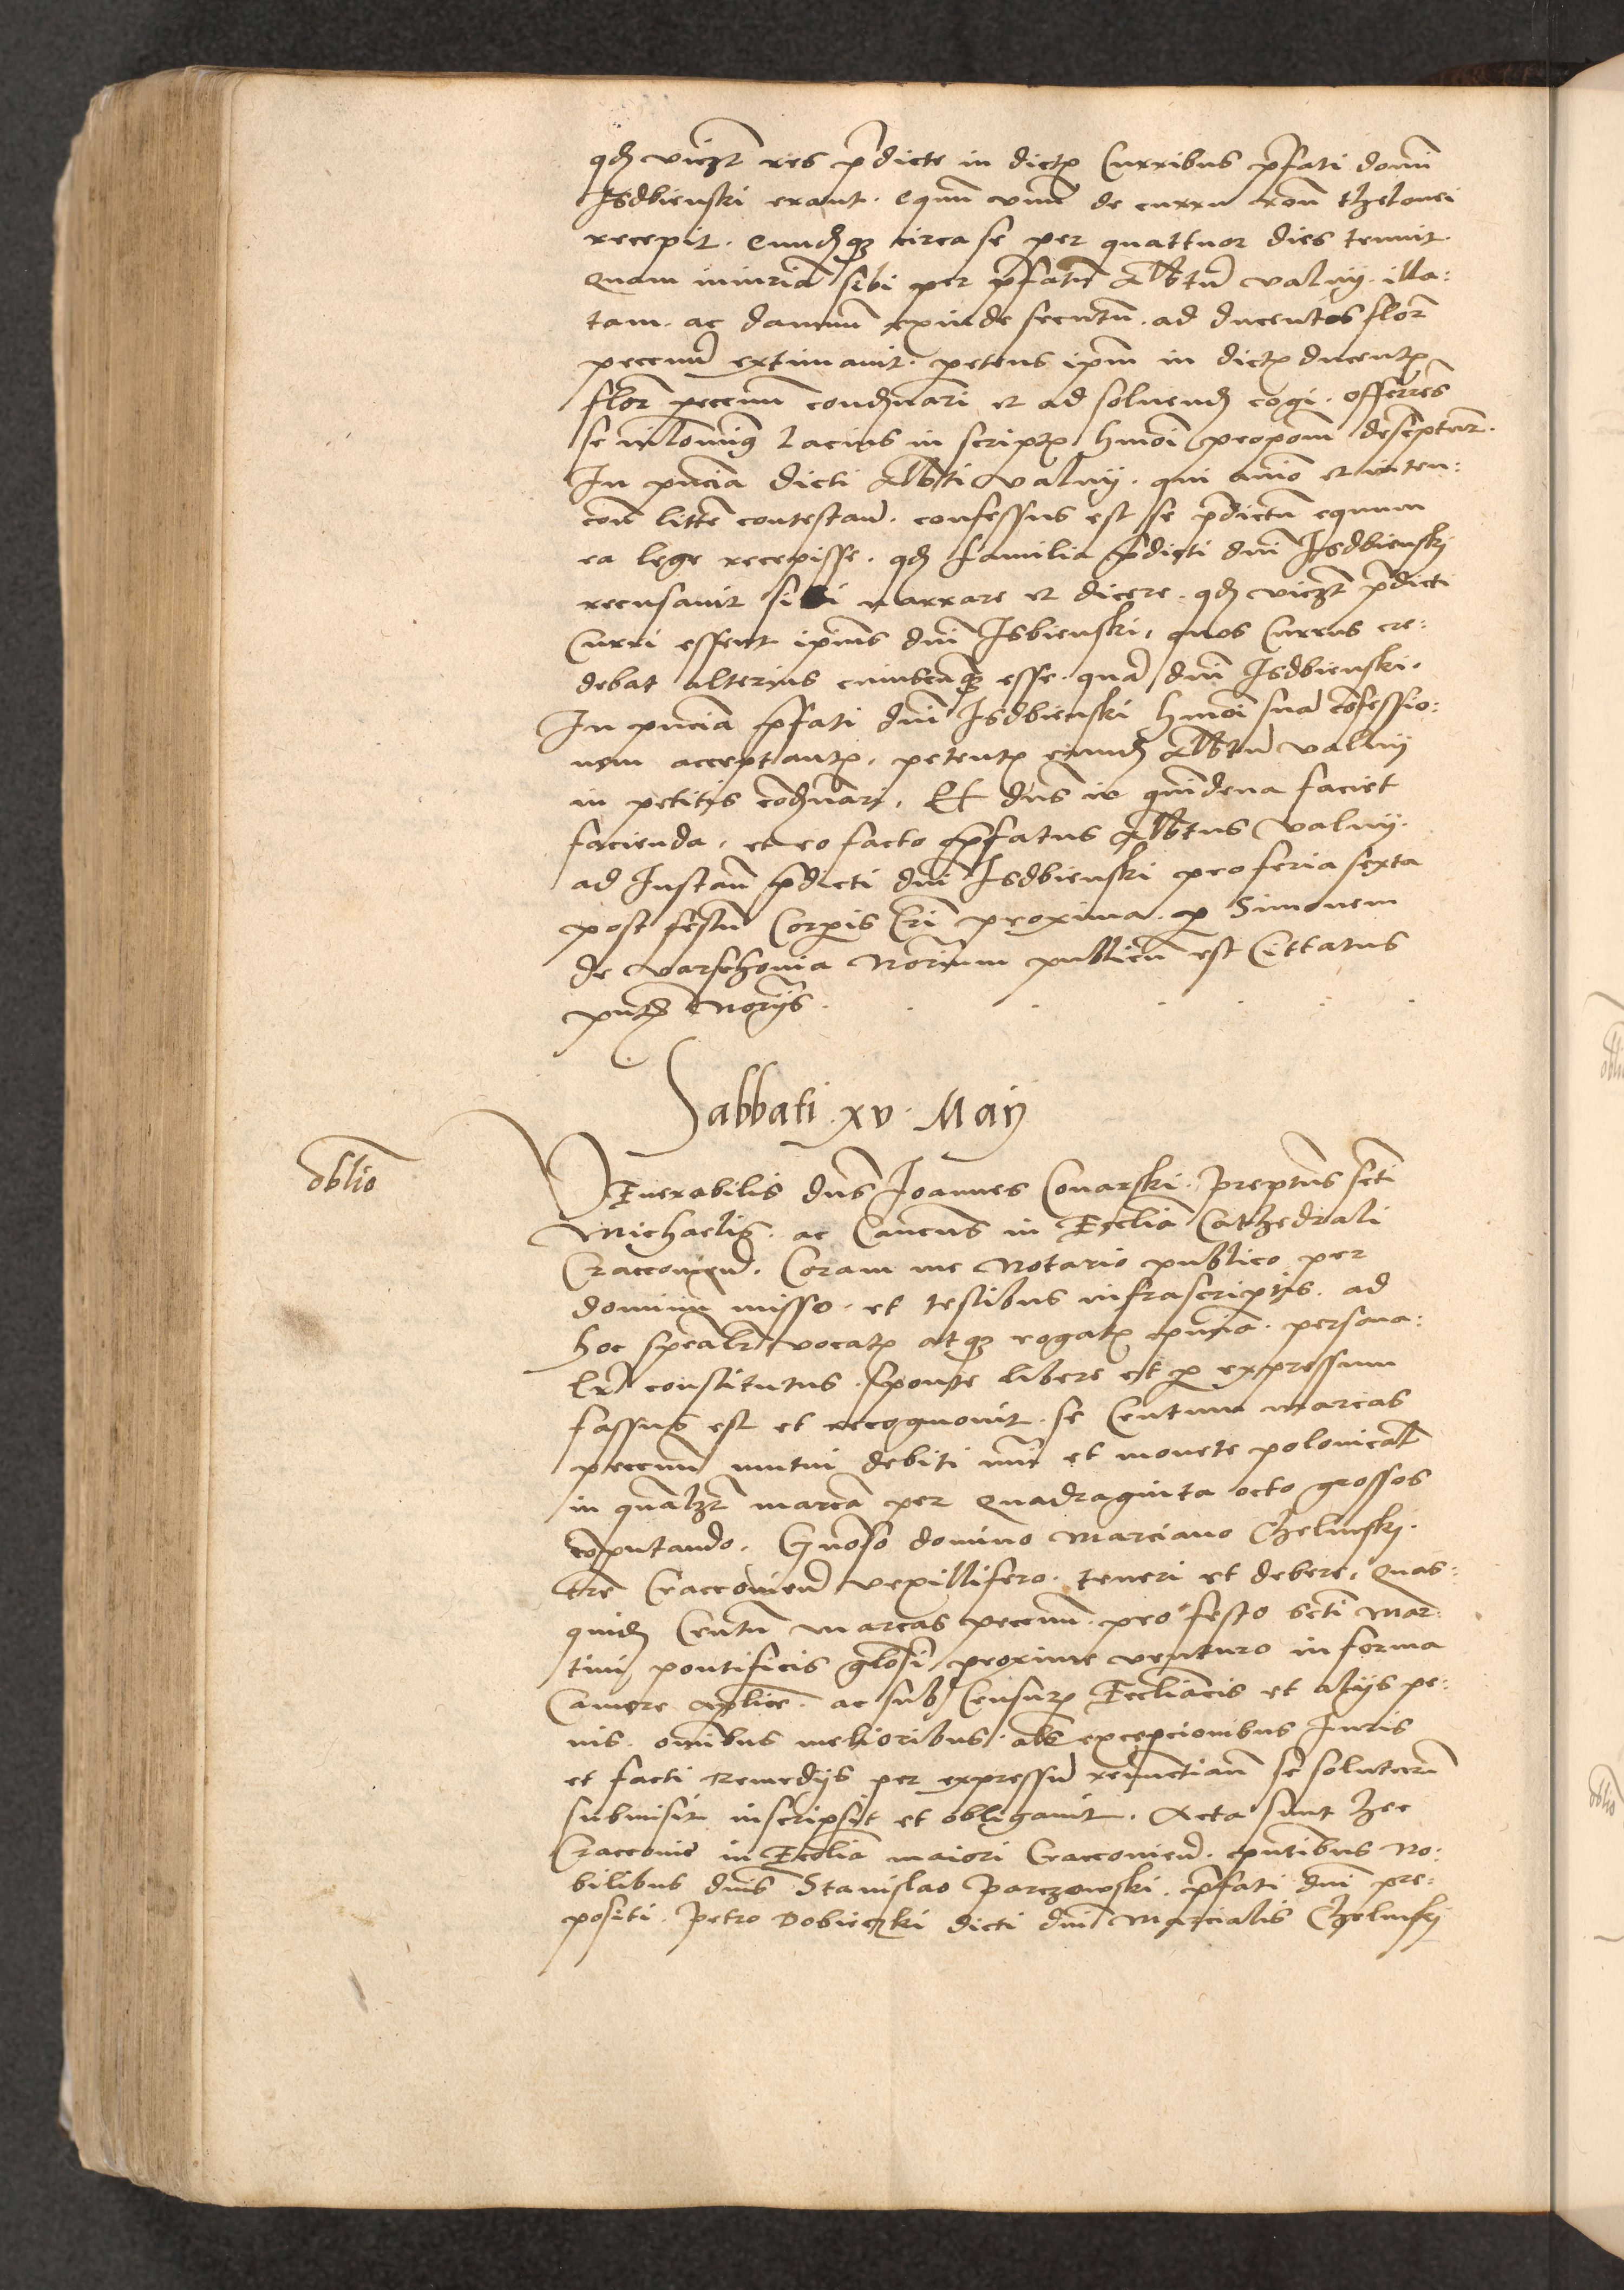 qd vicz res pdicte in dictis Curribus pfati domi
Isdbienski erant. equm vnu de curru roni thelonei
recepit. eundqz circa se per quattuor dies tenuit.
Quam iniuria sibi per pfatu Albtu valny. illa:
tam. ac damnu exinde secutu. ad ducentos flor
peccun extimauit. petens ipm in dictis ducentis
flor peccun condnari et ad soluend cogi. offerens
se lacius in scriptis hmoi propom descptur.
In pncia dicti Albti valny. qui animo et inten:
cone litte contestan. confessus est se pdictu equum
ea lege recepisse. qd familia pdicti dni Isdbienski
recusauit sibi narrare et dicere. qd vicz pdicti
Curri essent ipius dni Isbienski, quos Currus cre:
debat alterius cuiuscunqz esse. qua dni Isdbienski.
In pncia pfati dni Isdbienski hmoi sua cofessio:
nem acceptantis, petentis eund Albtu valny
in petitis codnari. Et dns in quindena faciet
facienda, et eo facto pfatus Albtus valny.
ad Instan pdicti dni Isdbienski pro feria sexta
post festu Corpis Cri proxima. p Simonem
de varschouia Norium publicu est Cittatus
pntibus Norys.
Sabbati xv. Maij
oblio
VEnerabilis dns Joannes Conarski. Prepitus scti
Michaelis. ac Cancus in Ecclia Cathedrali
Cracconien. Coram me Notario publico per
dominu misso. et testibus infrascriptis. ad
hoc spealr vocatis atqz rogatis pncia. persona:
lr constitutus. sponte libere et p expressum
fassus est et recognouit. se Centum marcas
peccun mutui debiti nui et monete polonicalis
in qualzt marca per Quadraginta octo grossos
coputando. Gnoso domino Marciano Chelmski.
tre Cracconien vexillifero. teneri et debere. Quas:
quid Centu marcas peccun. pro festo scti Mar:
tini pontificis glosi proxime venturo in forma
Camere aplice. ac sub Censuris Eccliacis et alijs pe:
nis. omibus melioribus. abs excepcionibus Iuris
et facti Remedijs per expressu renuctian se soluturu
submisit inscripsit et obligauit. Acta sunt hec
Cracconie in Ecclia maiori Cracconien. pntibus No:
bilibus dnis Stanislao Parczowski. pfati dni pre:
positi. Petro Dobieczki dicti dni Marcialis Chelmski